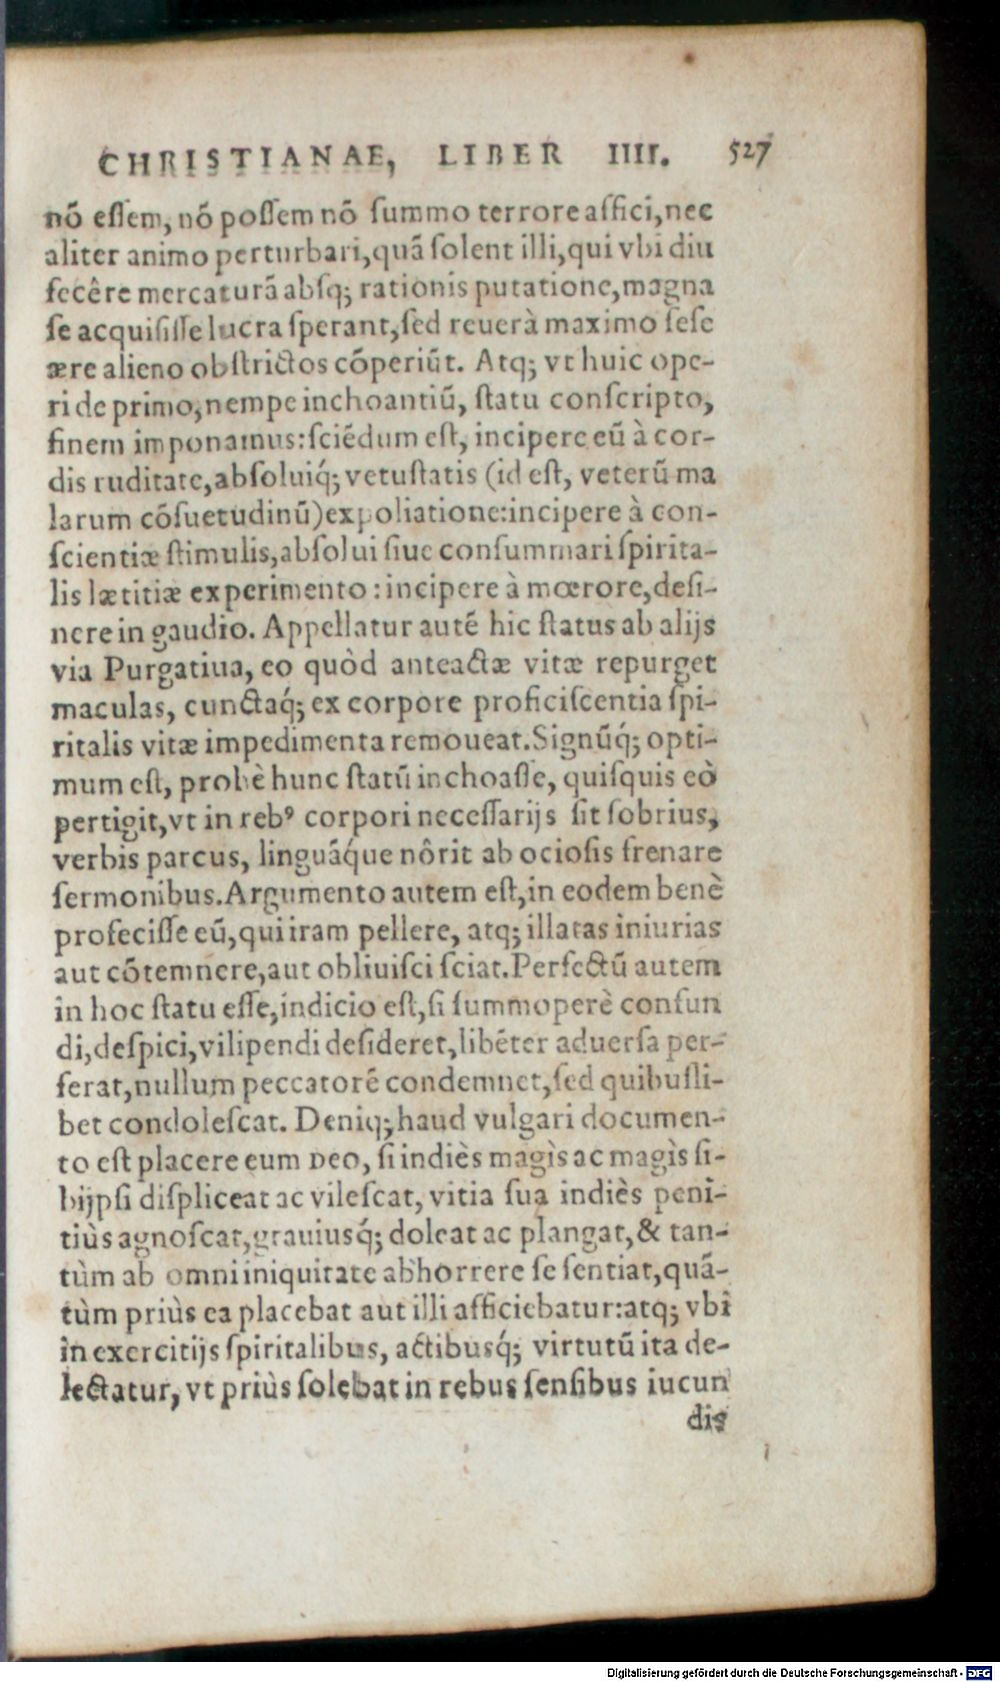 CHRISTIANAE, LIBER IIII. 527
nõ eſſem, nõ poſſem nõ ſummo terrore affici, nec
aliter animo perturbari, quã ſolent illi, qui vbi diu
fecêre mercaturã abſq; rationis putatione, magna
ſe acquiſiſſe lucra ſperant, ſed reuerà maximo ſeſe
ære alieno obſtrictos cõperiũt. Atq; vt huic ope-
ri de primo, nempe inchoantiũ, ſtatu conſcripto,
finem imponamus: ſciẽdum eſt, incipere eũ à cor-
dis ruditate, abſoluiq́; vetuſtatis (id eſt, veterũ ma
larum cõſuetudinũ) expoliatione: incipere à con-
ſcientiæ ſtimulis, abſolui ſiue conſummari ſpirita-
lis lætitiæ experimento: incipere à mœrore, deſi-
nere in gaudio. Appellatur autẽ hic ſtatus ab alijs
via Purgatiua, eo quòd anteactæ vitæ repurget
maculas, cunctaq́; ex corpore proficiſcentia ſpi-
ritalis vitæ impedimenta remoueat. Signũq́; opti-
mum eſt, probè hunc ſtatũ inchoaſſe, quiſquis eò
pertigit, vt in rebꝰ corpori neceſſarijs ſit ſobrius,
verbis parcus, linguãq́ue nôrit ab ocioſis frenare
ſermonibus. Argumento autem eſt, in eodem benè
profeciſſe eũ, qui iram pellere, atq; illatas iniurias
aut cõtemnere, aut obliuiſci ſciat. Perfectũ autem
in hoc ſtatu eſſe, indicio eſt, ſi ſummoperè confun
di, deſpici, vilipendi deſideret, libẽter aduerſa per-
ferat, nullum peccatorẽ condemnet, ſed quibuſli-
bet condoleſcat. Deniq; haud vulgari documen-
to eſt placere eum DEO, ſi indiès magìs ac magìs ſi-
bijpſi diſpliceat ac vileſcat, vitia ſua indiès peni-
tiùs agnoſcat, grauiusq́; doleat ac plangat, & tan-
tùm ab omni iniquitate abhorrere ſe ſentiat, quã-
tùm priùs ea placebat aut illi afficiebatur: atq; vbi
in exercitijs ſpiritalibus, actibusq́; virtutũ ita de-
lectatur, vt priùs ſolebat in rebus ſenſibus iucun
dis
Digitalisierung gefördert durch die Deutsche Forschungsgemeinschaft - DFG